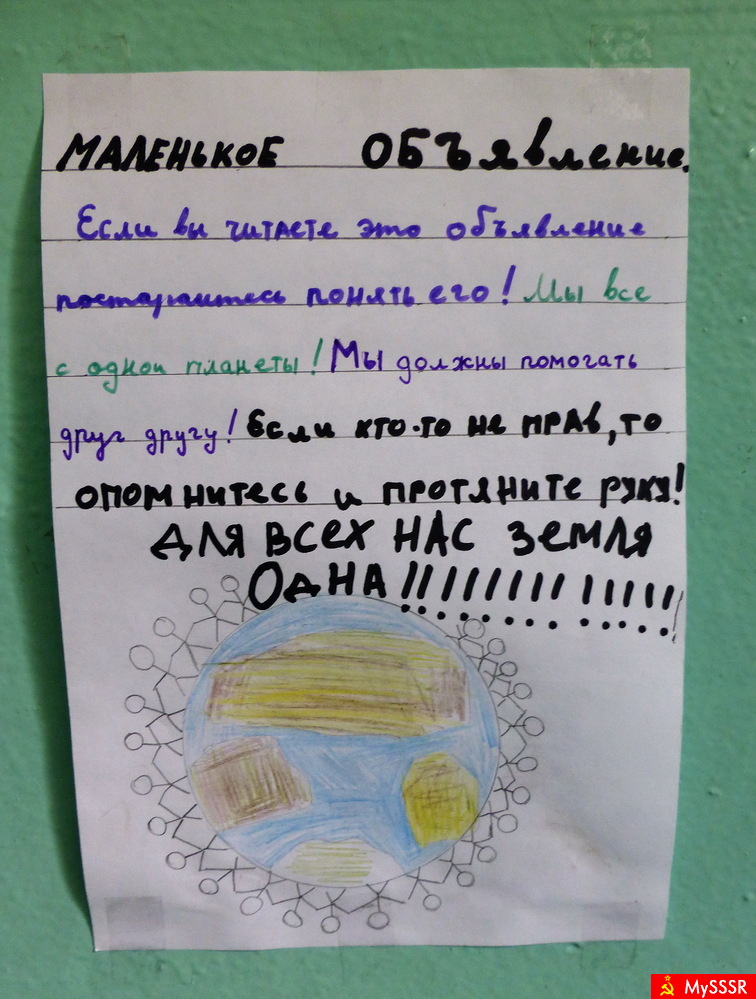 МАЛЕНЬКОЕ ОБЪЯвление.
Если вы читаете это объявление
постараитесь понять его! Мы все
с однои планеты! Мы должны помогать
друг другу! Если кто-то не прав, то
опомнитесь и протяните руку!
ДЛЯ ВСЕХ НАС ЗЕМЛЯ
ОДНА!!!!!!!!!!!!!!!
MySSSR